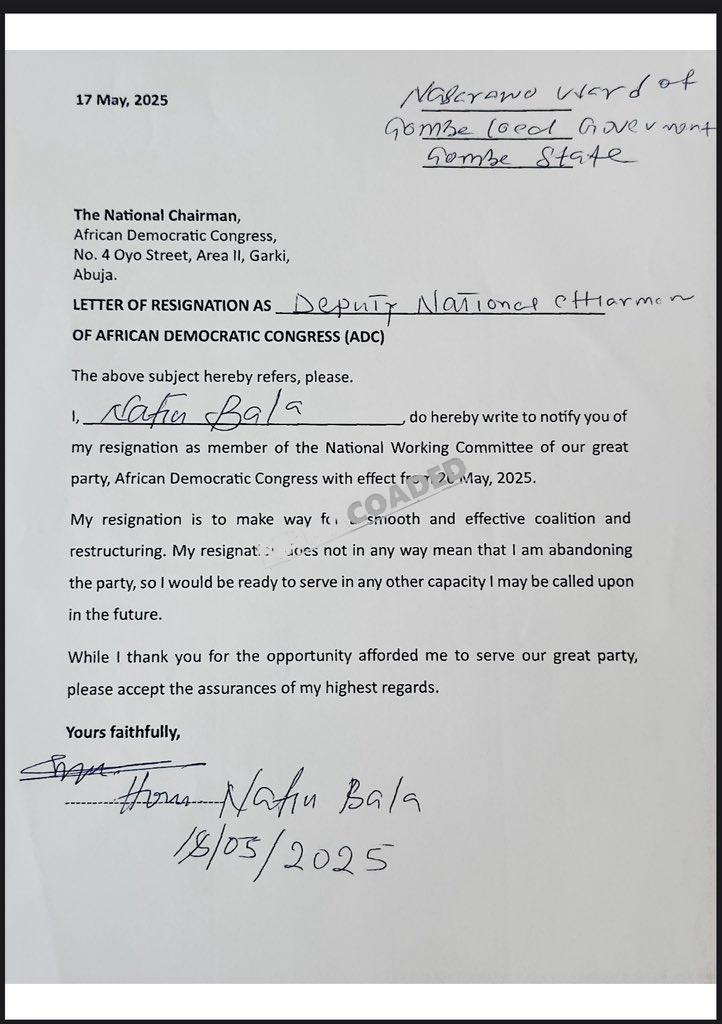 17 May, 2025
Nasarawo ward of
Gombe local Government
Gombe State
The National Chairman,
African Democratic Congress,
No. 4 Oyo Street, Area II, Garki,
Abuja.
LETTER OF RESIGNATION AS Deputy National Chairman
OF AFRICAN DEMOCRATIC CONGRESS (ADC)
The above subject hereby refers, please.
I, Nafiu Bala, do hereby write to notify you of
my resignation as member of the National Working Committee of our great
party, African Democratic Congress with effect from May, 2025.
COADED
My resignation is to make way for a smooth and effective coalition and
restructuring. My resignation does not in any way mean that I am abandoning
the party, so I would be ready to serve in any other capacity I may be called upon
in the future.
While I thank you for the opportunity afforded me to serve our great party,
please accept the assurances of my highest regards.
Yours faithfully,
Hon Nafiu Bala
18/05/2025